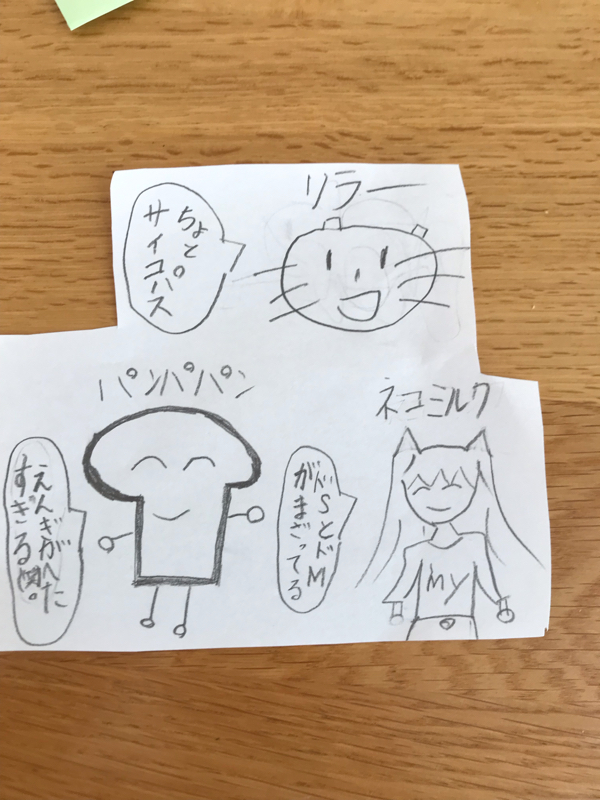 リラー
ちょと
サイコパス
パンパパン
えんぎがへた
すぎる
ネコミルク
ドSとドM
がまざってる
MY